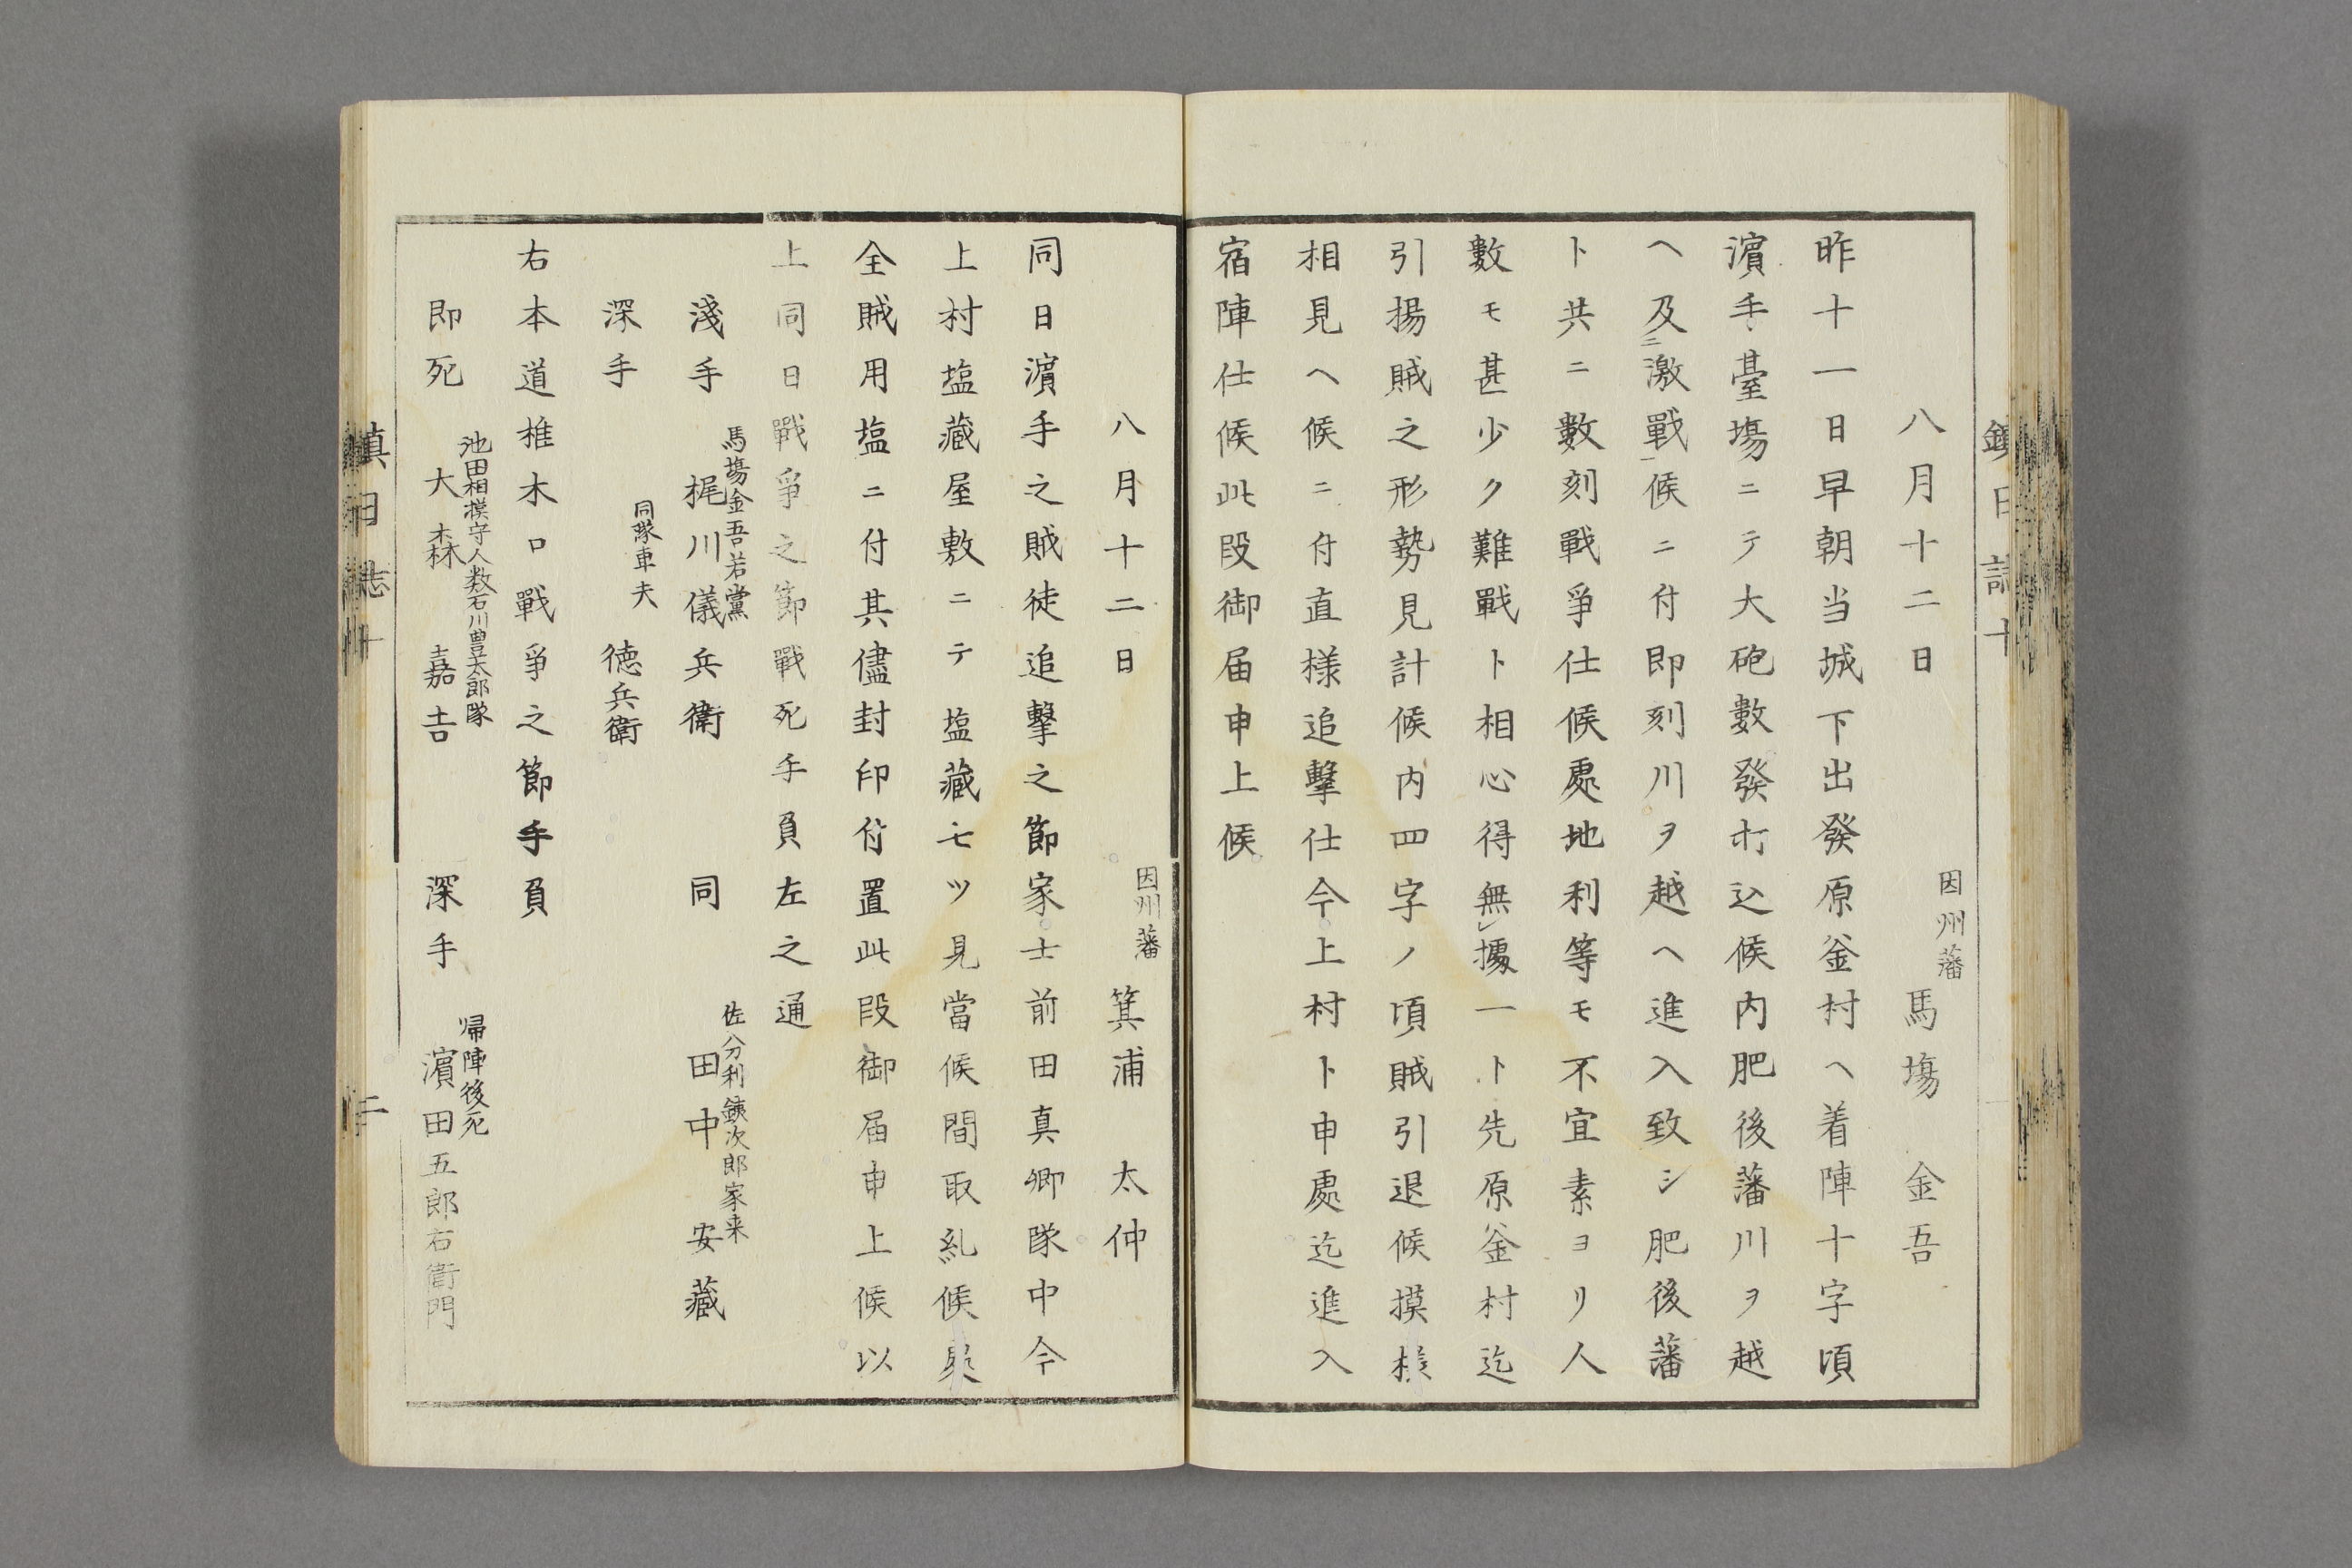 八月十二日
因州藩
馬塲金吾
昨十一日早朝当城下出發原釜村ヘ着陣十字頃
濵手臺塲ニテ大砲數發打込候内肥後藩川ヲ越
ヘ及ニ激戰一候ニ付即刻川ヲ越ヘ進入致シ肥後藩
ト共ニ數刻戰爭仕候處地利等モ不宜素ヨリ人
數モ甚少ク難戰ト相心得無レ據一ト先原釜村迄
引揚賊之形勢見計候内四字ノ頃賊引退候摸様
相見ヘ候ニ付直様追擊仕今上村ト申處迄進入
宿陣仕候此段御届申上候
八月十二日
因州藩
箕浦太仲
同日濵手之賊徒追擊之節家士前田真卿隊中今
上村塩藏屋敷ニテ塩藏七ツ見當候間取糺候處
全賊用塩ニ付其儘封印付置此段御届申上候以
上同日戰爭之節戰死手負左之通
馬塲金吾若黨
淺手 梶川儀兵衛
佐分利鐵次郎家来
同 田中安藏
同隊車夫
深手 徳兵衛
右本道椎木口戰爭之節手負
池田相摸守人数石川豊太郎隊
即死 大森嘉吉
帰陣後死
深手 濵田五郎右衛門
鎮日誌十
二